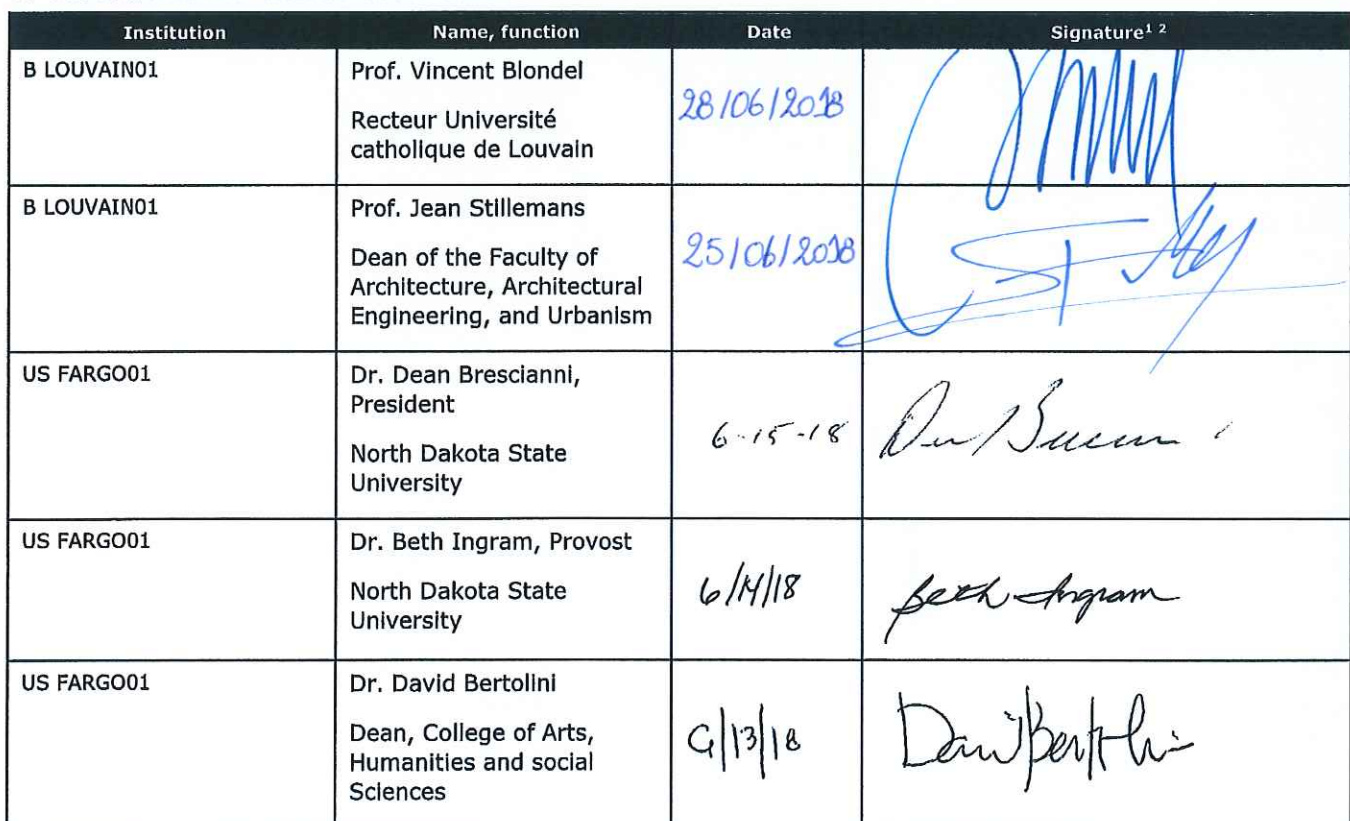 Institution Name, function Date Signature¹ ²
B LOUVAIN01
Prof. Vincent Blondel
Recteur Université
catholique de Louvain
28/06/2018
B LOUVAIN01
Prof. Jean Stillemans
Dean of the Faculty of
Architecture, Architectural
Engineering, and Urbanism
25/06/2018
US FARGO01
Dr. Dean Brescianni,
President
North Dakota State
University
6-15-18
US FARGO01
Dr. Beth Ingram, Provost
North Dakota State
University
6/14/18
Beth Ingram
US FARGO01
Dr. David Bertolini
Dean, College of Arts,
Humanities and social
Sciences
6/13/18
David Bertolini